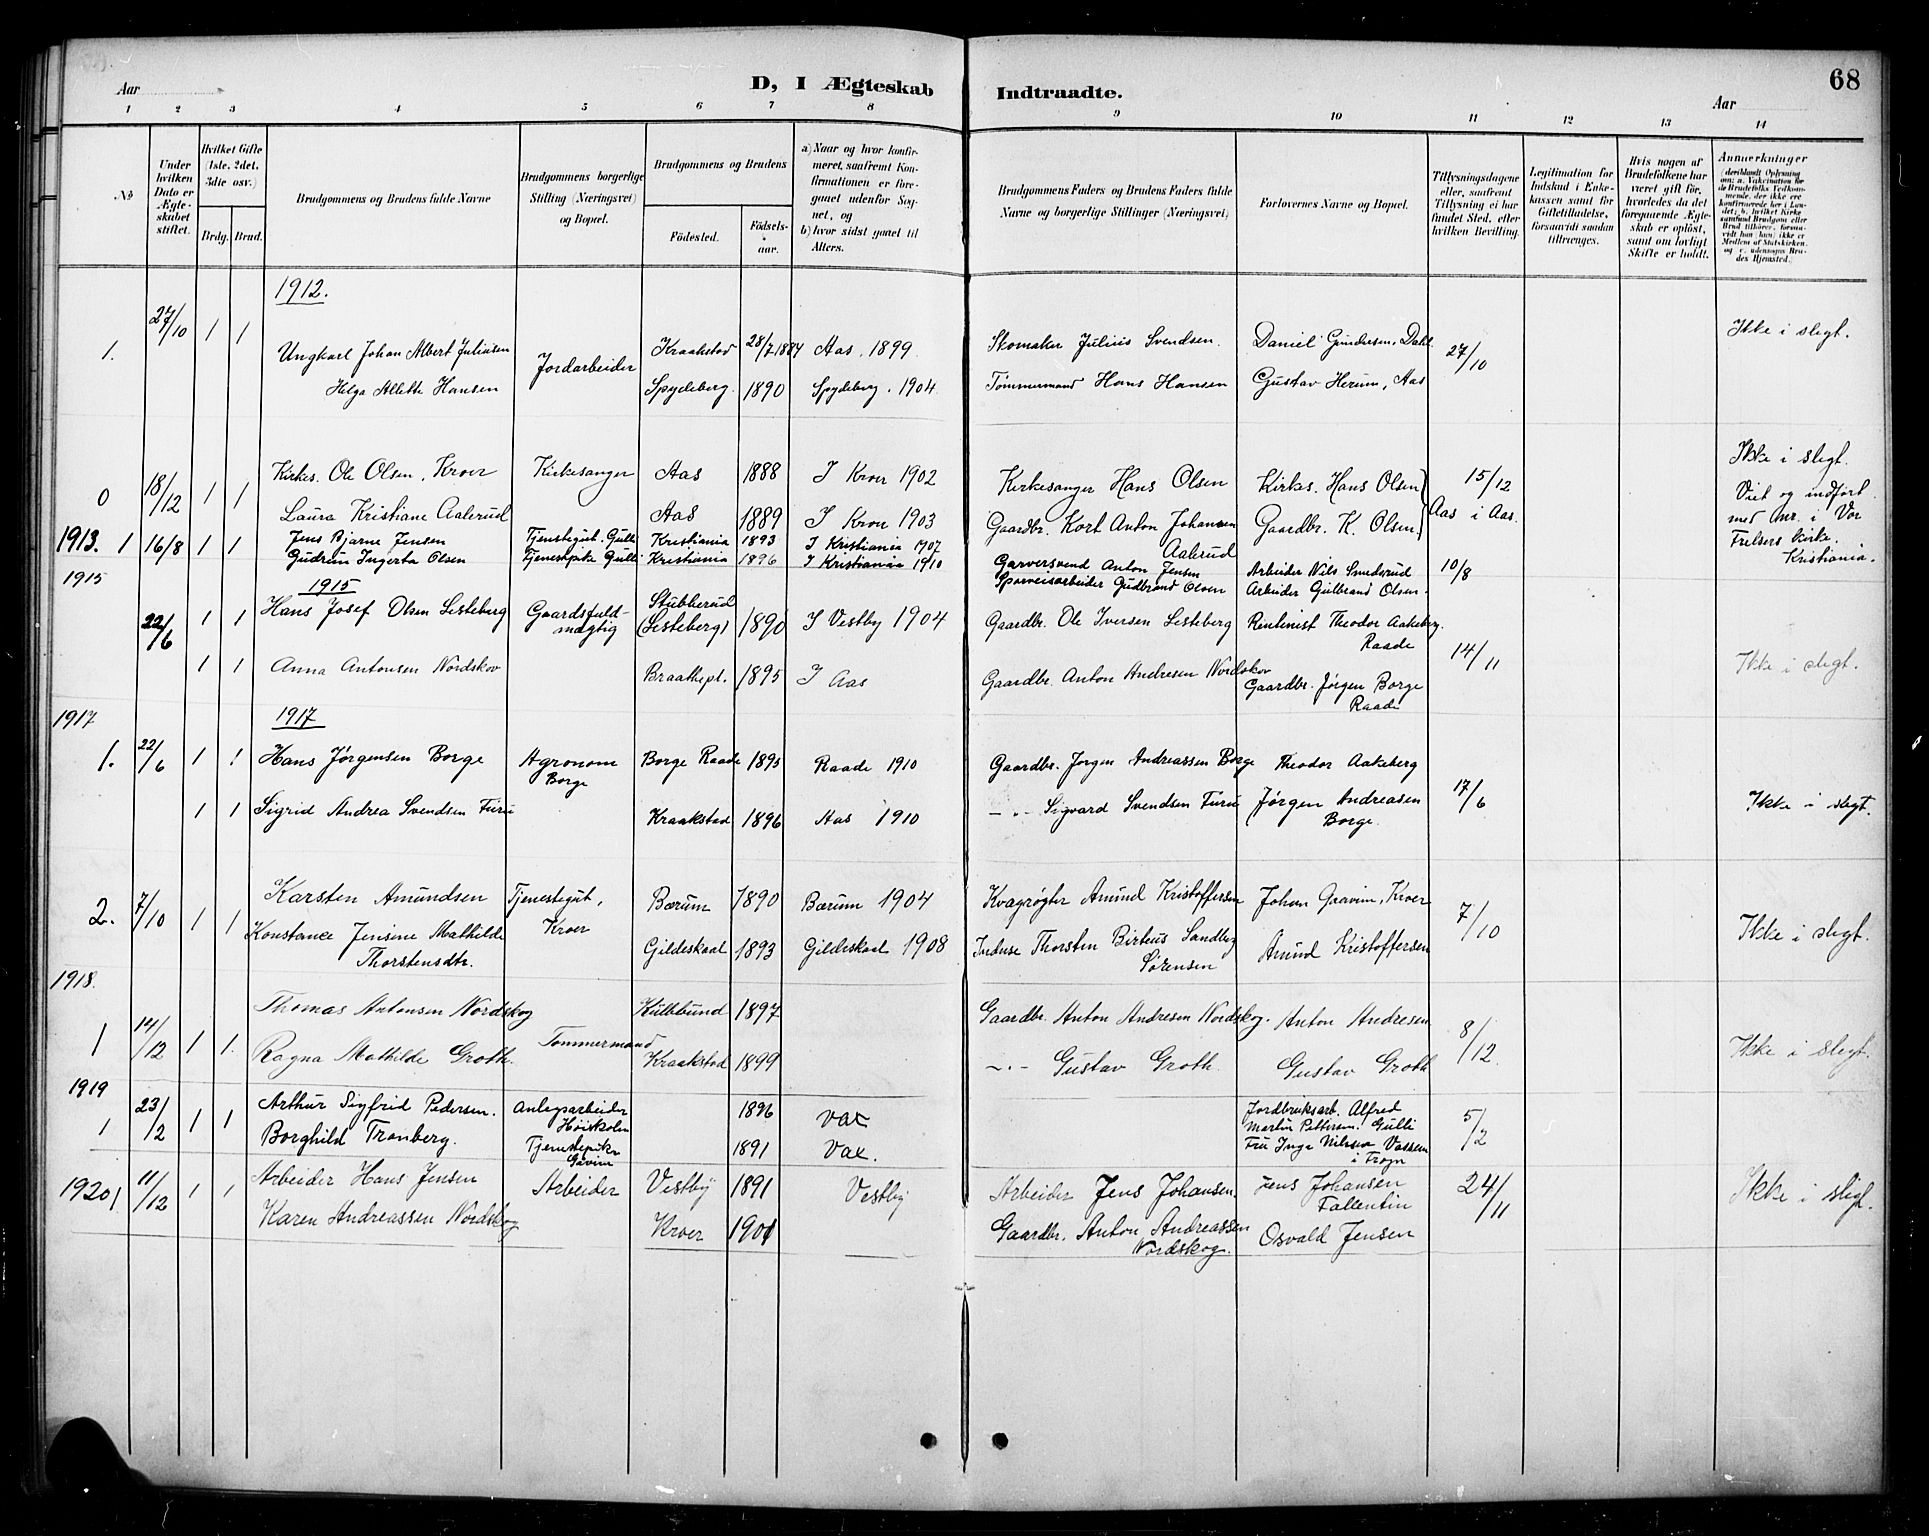 68
Aar
D, I Ægteskab Indtraadte.
Aar
1 2 3 4 5 6 7 8 9 10 11 12 13 14
№
Under hvilken Dato er Ægteskabet stiftet.
Hvilket Gifte (1ste, 2det, 3die osv.)
Brdg. Brud.
Brudgommens og Brudens fulde Navne
Brudgommens borgerlige Stilling (Næringsvei) og Bopæl.
Brudgommens og Brudens
Födested. Födselsaar.
a) Naar og hvor konfirmeret, saafremt Konfirmationen er foregaaet udenfor Sognet, og
b) hvor sidst gaaet til Alters.
Brudgommens Faders og Brudens Faders fulde Navne og borgerlige Stillinger (Næringsvei)
Forlovernes Navne og Bopæl.
Tillysningsdagene eller, saafremt Tillysning ei har fundet Sted, efter hvilken Bevilling.
Legitimation for Indskud i Enkekassen samt for Giftetilladelse, forsaavidt saadan tiltrænges.
Hvis nogen af Brudefolkene har været gift för, hvorledes da det foregaaende Ægteskab er oplöst, samt om lovligt Skifte er holdt.
Anmærkninger (deriblandt Oplysning om: a. Vakcination for de Brudefolks Vedkommende, der ikke ere konfirmerede her i Landet; b. hvilket Kirkesamfund Brudgom eller Brud tilhörer, forsaavidt han (hun) ikke er Medlem af Statskirken, og c. udensogns Brudes Hjemsted.)
1912.
1. 27/10 1 1 Ungkarl Johan Albert Juliussen Jordarbeider Kraakstad 28/7 1884 Aas. 1899 Skomaker Julius Svendsen. Daniel Gundersen, Dahl 27/10 Ikke i slegt.
Helga Allette Hansen Spydeberg. 1890 Spydeberg. 1904 Tømmermand Hans Hansen Gustav Herum, Aas
0 18/12 1 1 Kirkes. Ole Olsen, Kroer Kirkesanger Aas 1888 I Kroer 1902 Kirkesanger Hans Olsen Kirkes. Hans Olsen 15/12 Ikke i slegt.
Laura Kristiane Aalerud Aas 1889 I Kroer 1903 Gaardbr. Kort Anton Johansen Aalerud Gaardbr. K. Olsen. Aas i Aas. Viet og indført med Anr. i Vor Frelsers Kirke. Kristiania.
1913. 1 16/8 1 1 Jens Bjarne Jensen Tjenestegut. Gulli Kristiania 1893 I Kristiania 1907 Garversvend Anton Jensen Arbeider Nils Smedsrud 10/8
Gudrun Ingerta Olsen Tjenestepike Gulli Kristiania 1896 I Kristiania 1910 Sporveisarbeider Gudbrand Olsen Arbeider Gulbrand Olsen.
1915
1915
22/6 1 1 Hans Josef Olsen Listeberg Gaardsfuldmægtig Stubberud (Listeberg) 1890 I Vestby 1904 Gaardbr. Ole Iversen Listeberg Rentenist Theodor Aakeberg. Raade 14/11
1 1 Anna Antonsen Nordskov Braathept. 1895 I Aas Gaardbr. Anton Andresen Nordskov Gaardbr. Jørgen Borge Raade Ikke i slegt.
1917
1917
1. 22/6 1 1 Hans Jørgensen Borge Agronom Borge Borge Raade 1895 Raade 1910 Gaardbr. Jørgen Andreassen Borge Theodor Aakeberg 17/6
1 1 Sigrid Andrea Svendsen Furu Kraakstad 1896 Aas 1910 - " - Sigvard Svendsen Furu Jørgen Andreasen Borge. Ikke i slegt.
2. 7/10 1 1 Karsten Amundsen Tjenestegut, Kroer Bærum 1890 Bærum 1904 Kvægrøgter Amund Kristoffersen Johan Gaavim, Kroer 7/10
Konstance Jensine Mathilde Thorstensdtr. Gildeskaal 1893 Gildeskaal 1908 Inderse Thorsten Birkus Sandberg Sørensen Amund Kristoffersen Ikke i slegt.
1918.
1 14/12 1 1. Thomas Antonsen Nordskog Tømmermand Kulbbund 1897 Gaardbr. Anton Andresen Nordskog. Anton Andresen 8/12
Ragna Mathilde Groth. Kraakstad 1899 - " - Gustav Groth. Gustav Groth Ikke i slegt.
1919
1 23/2 1 1 Arthur Sigfrid Pedersen. Anlegsarbeider Høiskolen 1896 vac Jordbruksarb. Alfred Martin Pettersen. Gulli 5/2
Borghild Tronberg. Tjenestepike Gavim 1891 Vac. Fru Inga Nilssen Vassum i Frogn
1920 1 11/12 1 1 Arbeider Hans Jensen Arbeider Vestby 1891 Vestby Arbeider Jens Johansen. Jens Johansen Fallentin 24/11 Ikke i slegt.
Karen Andreassen Nordskog Kroer 1901 Gaardbr. Anton Andreassen Nordskog. Osvald Jensen